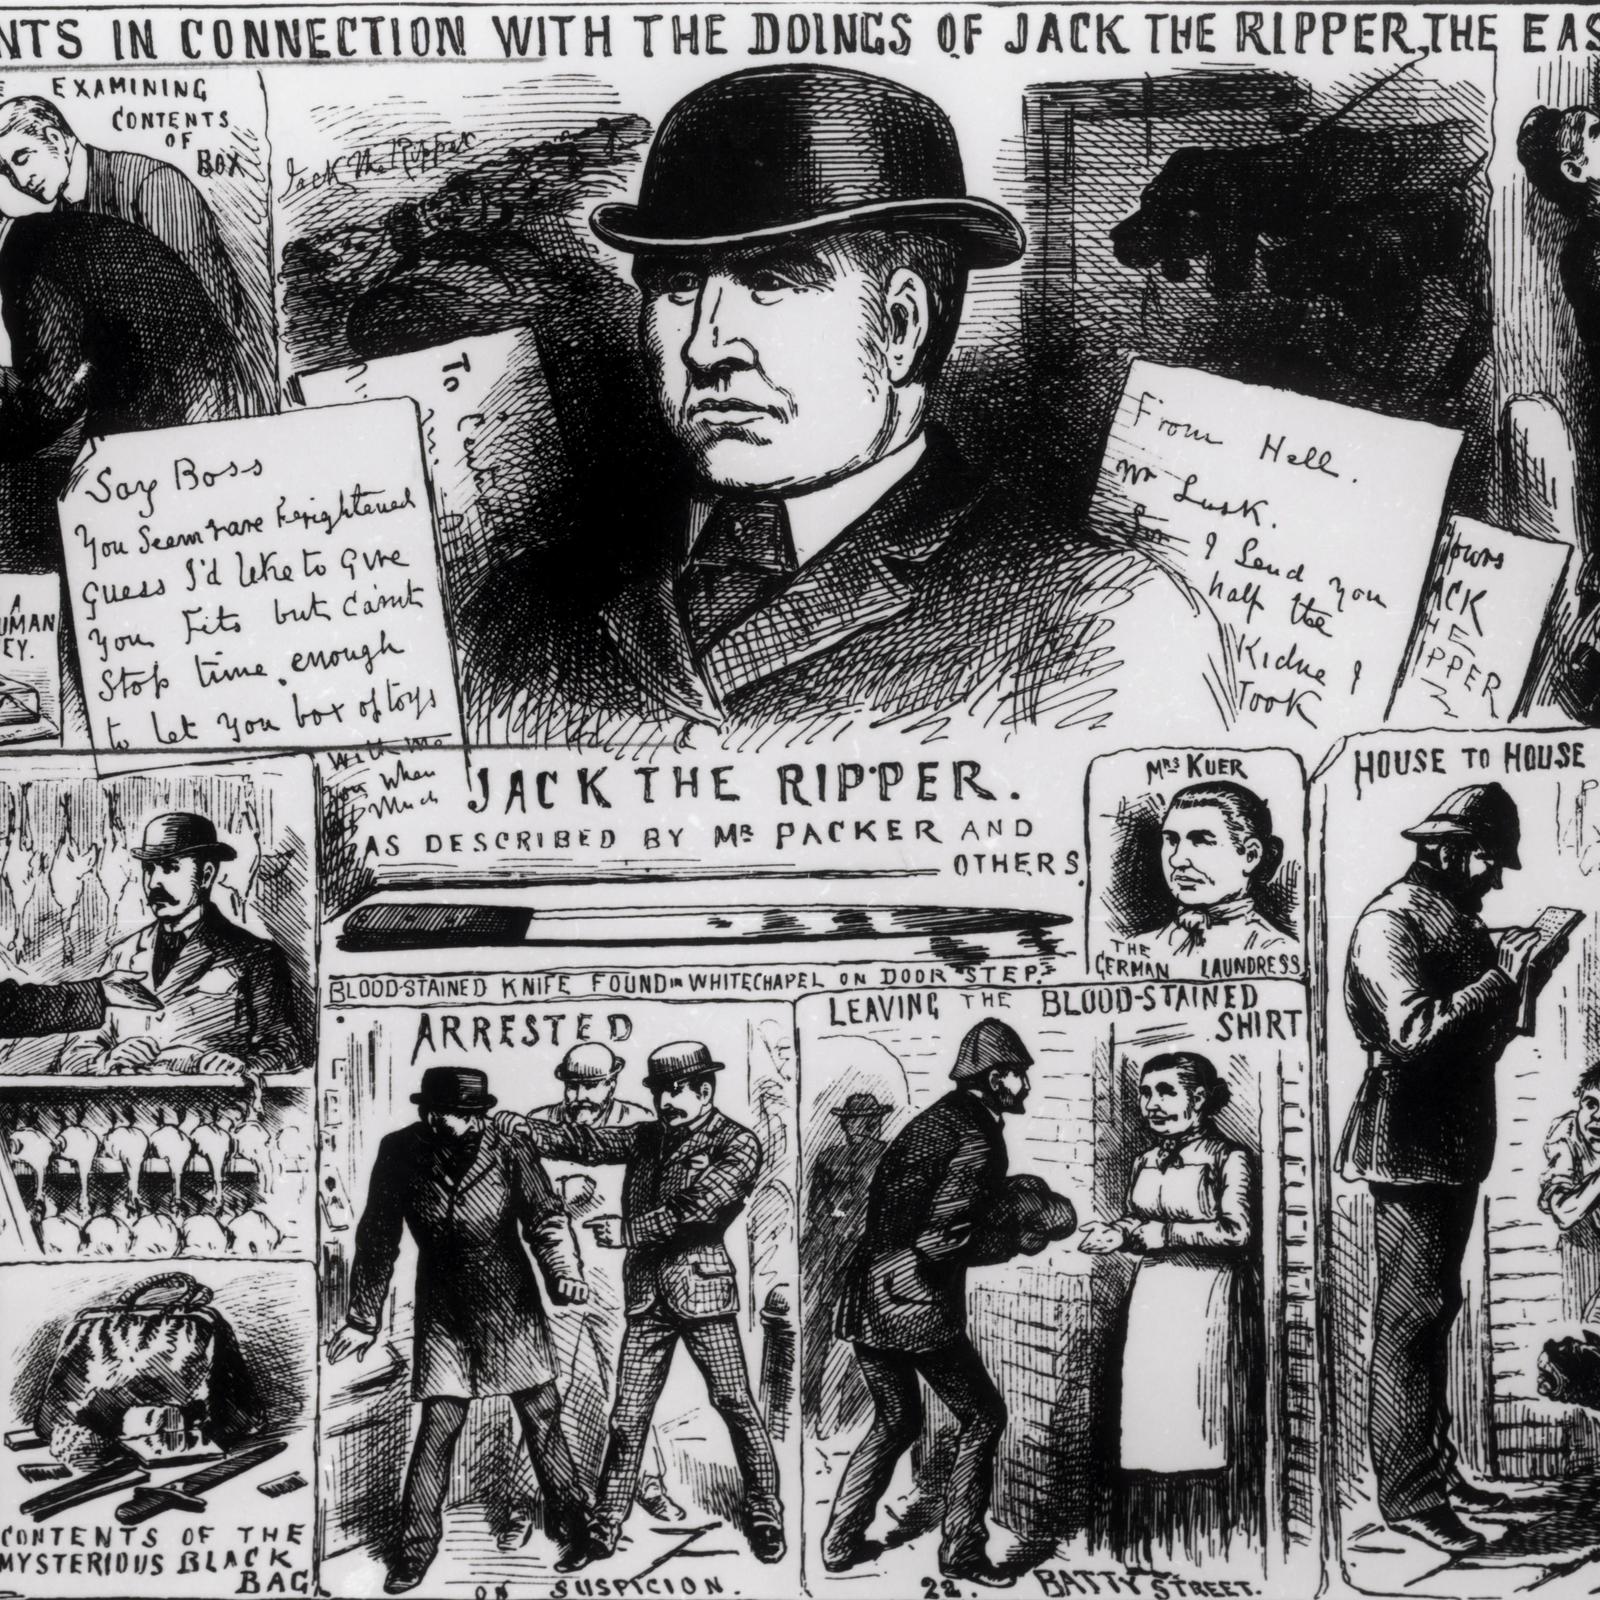 NTS IN CONNECTION WITH THE DOINGS OF JACK THE RIPPER, THE EAS
EXAMINING
CONTENTS
OF
BOX
Jack the Ripper
To
Say Boss
You Seem rare frightened
guess I'd like to give
you fits but can't
Stop time enough
to let you box of toys
With me
You When
Much
From Hell.
Mr Lusk.
Sor
I Send you
half the
Kidne I
Took
Yours
ACK
HE
IPPER
A
UMAN
EY.
JACK THE RIPPER.
AS DESCRIBED BY MR PACKER AND
OTHERS.
MRS KUER
THE
GERMAN LAUNDRESS
HOUSE TO HOUSE
BLOOD-STAINED KNIFE FOUND IN WHITECHAPEL ON DOOR STEP.
ARRESTED
ON SUSPICION.
LEAVING THE BLOOD-STAINED
SHIRT
22. BATTY STREET.
CONTENTS OF THE
MYSTERIOUS BLACK
BAG